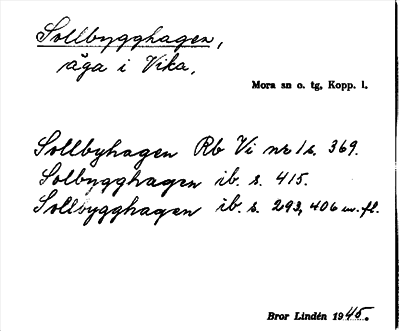 Sollbygghagen,
äga i Vika.
Mora sn o. tg, Kopp. l.
Sollbyhagen Rb Vi nr 1 s. 369.
Solbygghagen ib. s. 415.
Sollbygghagen ib. s. 293, 406 m. fl.
Bror Lindén 1945.